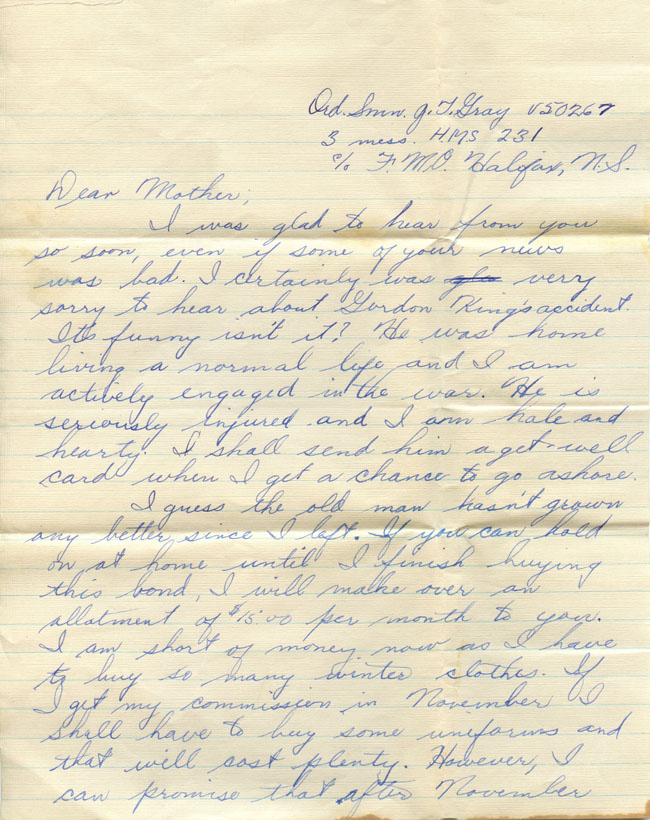 Ord. Smn. J. T. Gray V50267
3 mess. H.M.S 231
c/o F.M.O. Halifax, N.S.
Dear Mother;
I was glad to hear from you
so soon, even if some of your news
was bad. I certainly was gla very
sorry to hear about Gordon King's accident.
Its funny isn't it? He was home
living a normal life and I am
actively engaged in the war. He is
seriously injured and I am hale and
hearty. I shall send him a get-well
card when I get a chance to go ashore.
I guess the old man hasn't grown
any better since I left. If you can hold
on at home until I finish buying
this bond, I will make over an
allotment of $15.00 per month to you.
I am short of money now as I have
to buy so many winter clothes. If
I get my commission in November I
shall have to buy some uniforms and
that will cost plenty. However, I
can promise that after November